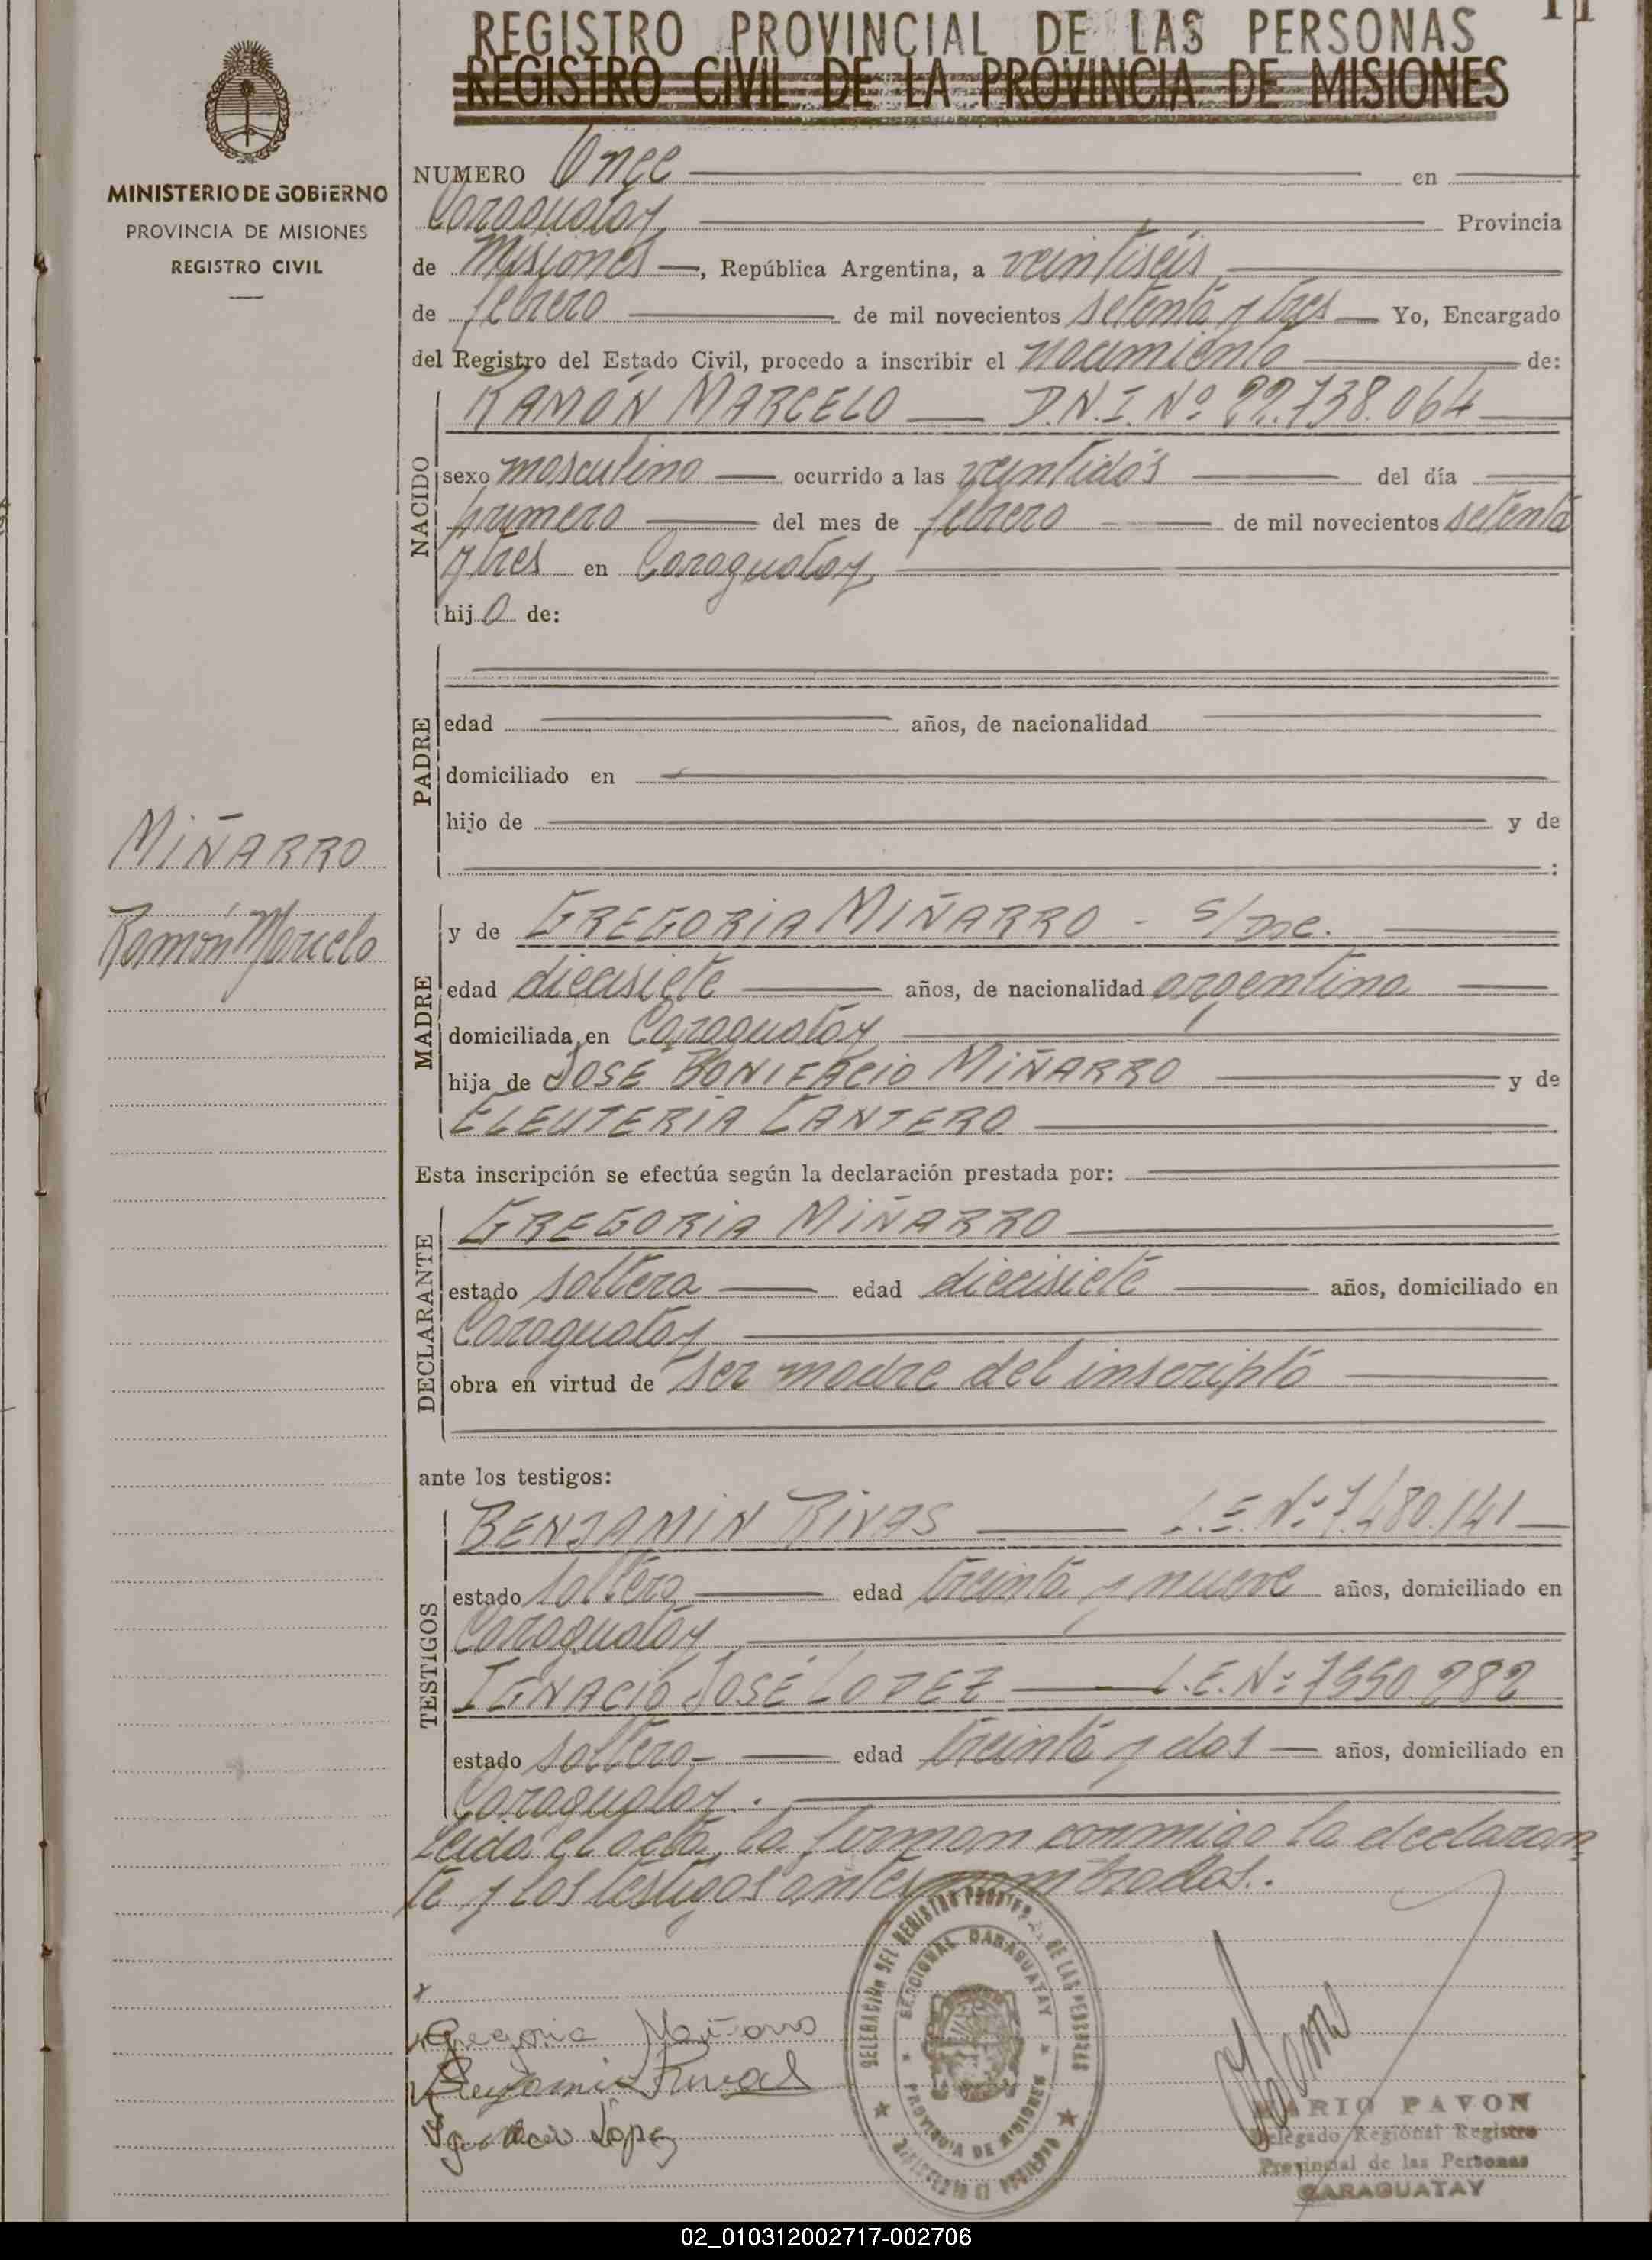 11
REGISTRO PROVINCIAL DE LAS PERSONAS
REGISTRO CIVIL DE LA PROVINCIA DE MISIONES
MINISTERIO DE GOBIERNO
PROVINCIA DE MISIONES
REGISTRO CIVIL
NUMERO Once en
Caraguatay Provincia
de Misiones, República Argentina, a veintiseis
de febrero de mil novecientos setenta y tres Yo, Encargado
del Registro del Estado Civil, procedo a inscribir el nacimiento de:
NACIDO
RAMÓN MARCELO D.N.I. Nº 22.738.064
sexo masculino ocurrido a las veintidós del día
primero del mes de febrero de mil novecientos setenta
y tres en Caraguatay
hijo de:
PADRE
edad años, de nacionalidad
domiciliado en
hijo de y de
:
MIÑARRO
Ramón Marcelo
MADRE
y de GREGORIA MIÑARRO - S/Doc.
edad diecisiete años, de nacionalidad argentina
domiciliada en Caraguatay
hija de JOSÉ BONIFACIO MIÑARRO y de
ELEUTERIA CANTERO
Esta inscripción se efectúa según la declaración prestada por:
DECLARANTE
GREGORIA MIÑARRO
estado soltera edad diecisiete años, domiciliado en
Caraguatay
obra en virtud de ser madre del inscripto
ante los testigos:
TESTIGOS
BENJAMIN RIVAS L.E. Nº 7.480.141
estado soltero edad treinta y nueve años, domiciliado en
Caraguatay
IGNACIO JOSÉ LOPEZ L.E. Nº 7550.282
estado soltero edad treinta y dos años, domiciliado en
Caraguatay.
Leida el acta, la firman conmigo la declaran
te y los testigos antes nombrados.
Gregoria Miñarro
Benjamin Rivas
Ignacio López
DELEGACIÓN DEL REGISTRO PROVINCIAL DE LAS PERSONAS
SECCIONAL CARAGUATAY
PROVINCIA DE MISIONES
MINISTERIO DE GOBIERNO
MARIO PAVON
Delegado Regional Registro
Provincial de las Personas
CARAGUATAY
02_010312002717-002706